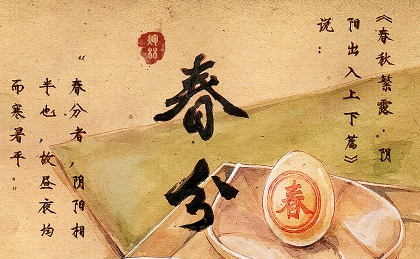 《春秋繁露·阴
阳出入上下篇》
说：
春分
春
“春分者，阴阳相
半也，故昼夜均
而寒暑平。”